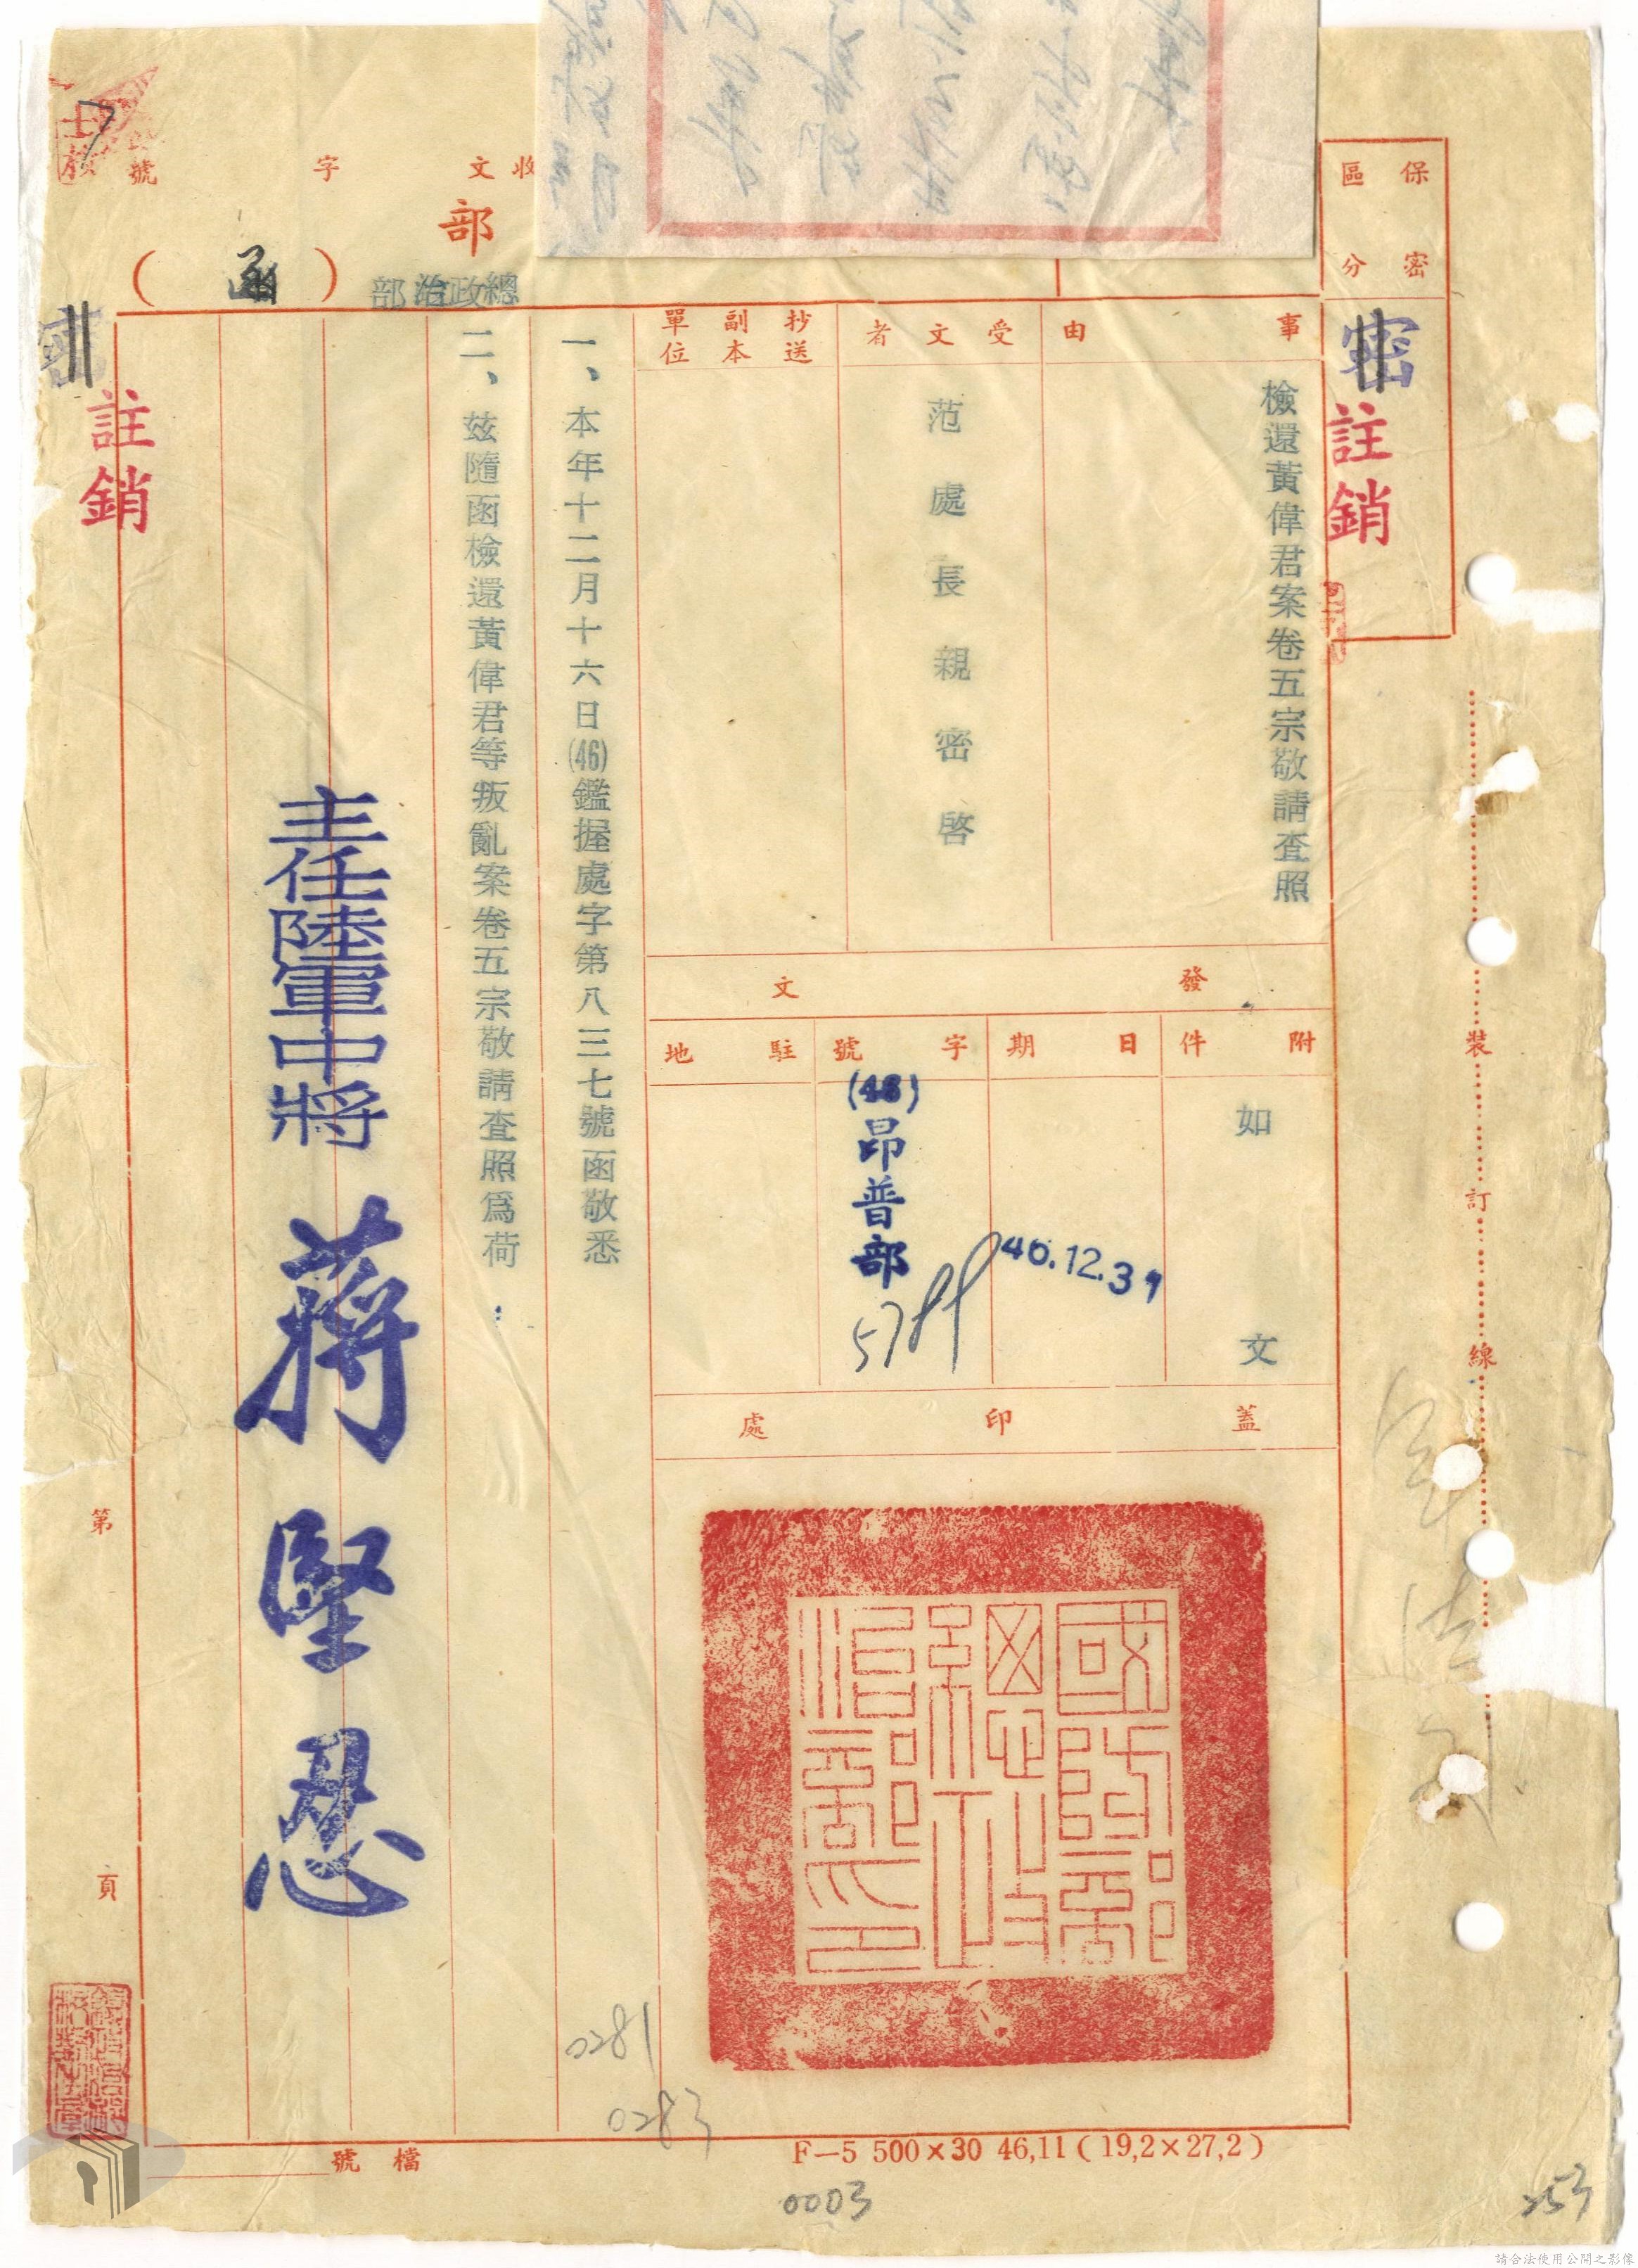 保密
區分
密
註銷
收文 字 號
部
總政治部
(函)
事由
檢還黃偉君案卷五宗敬請查照
受文者
范處長親密啓
抄送
副本
單位
發文
附件
如文
日期
46.12.31
字號
(46)昂普部
駐地
蓋印處
國防部總政治部印
一、本年十二月十六日(46)鑑握處字第八三七號函敬悉
二、茲隨函檢還黃偉君等叛亂案卷五宗敬請查照爲荷
主任陸軍中將 蔣堅忍
密
註銷
第 頁
裝 訂 線
0281
0283
檔號
F—5 500×30 46,11(19,2×27,2)
0003
253
請合法使用公開之影像